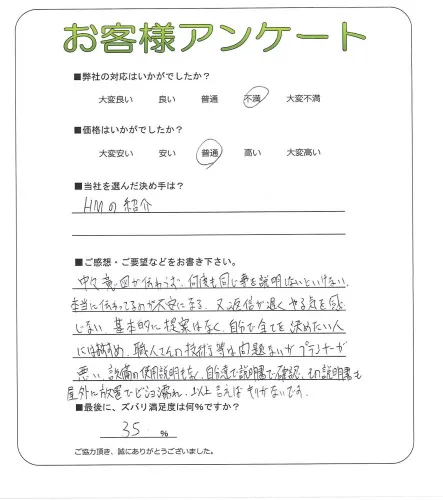 お客様アンケート
■弊社の対応はいかがでしたか？
大変良い 良い 普通 不満 大変不満
■価格はいかがでしたか？
大変安い 安い 普通 高い 大変高い
■当社を選んだ決め手は？
HMの紹介
■ご感想・ご要望などをお書き下さい。
中々意図が伝わらず、何度も同じ事を説明しないといけない、
本当に伝わってるのか不安になる。又返信が遅くやる気を感
じない。基本的に提案はなく、自分で全てを決めたい人
にはおすすめ。職人さんの技術等は問題ないがプランナーが
悪い。設備の使用説明もなく、自分達で説明書で確認、その説明書も
屋外に放置でビショ濡れ。以上言えばキリがないです。
■最後に、ズバリ満足度は何％ですか？
35 %
ご協力頂き、誠にありがとうございました。